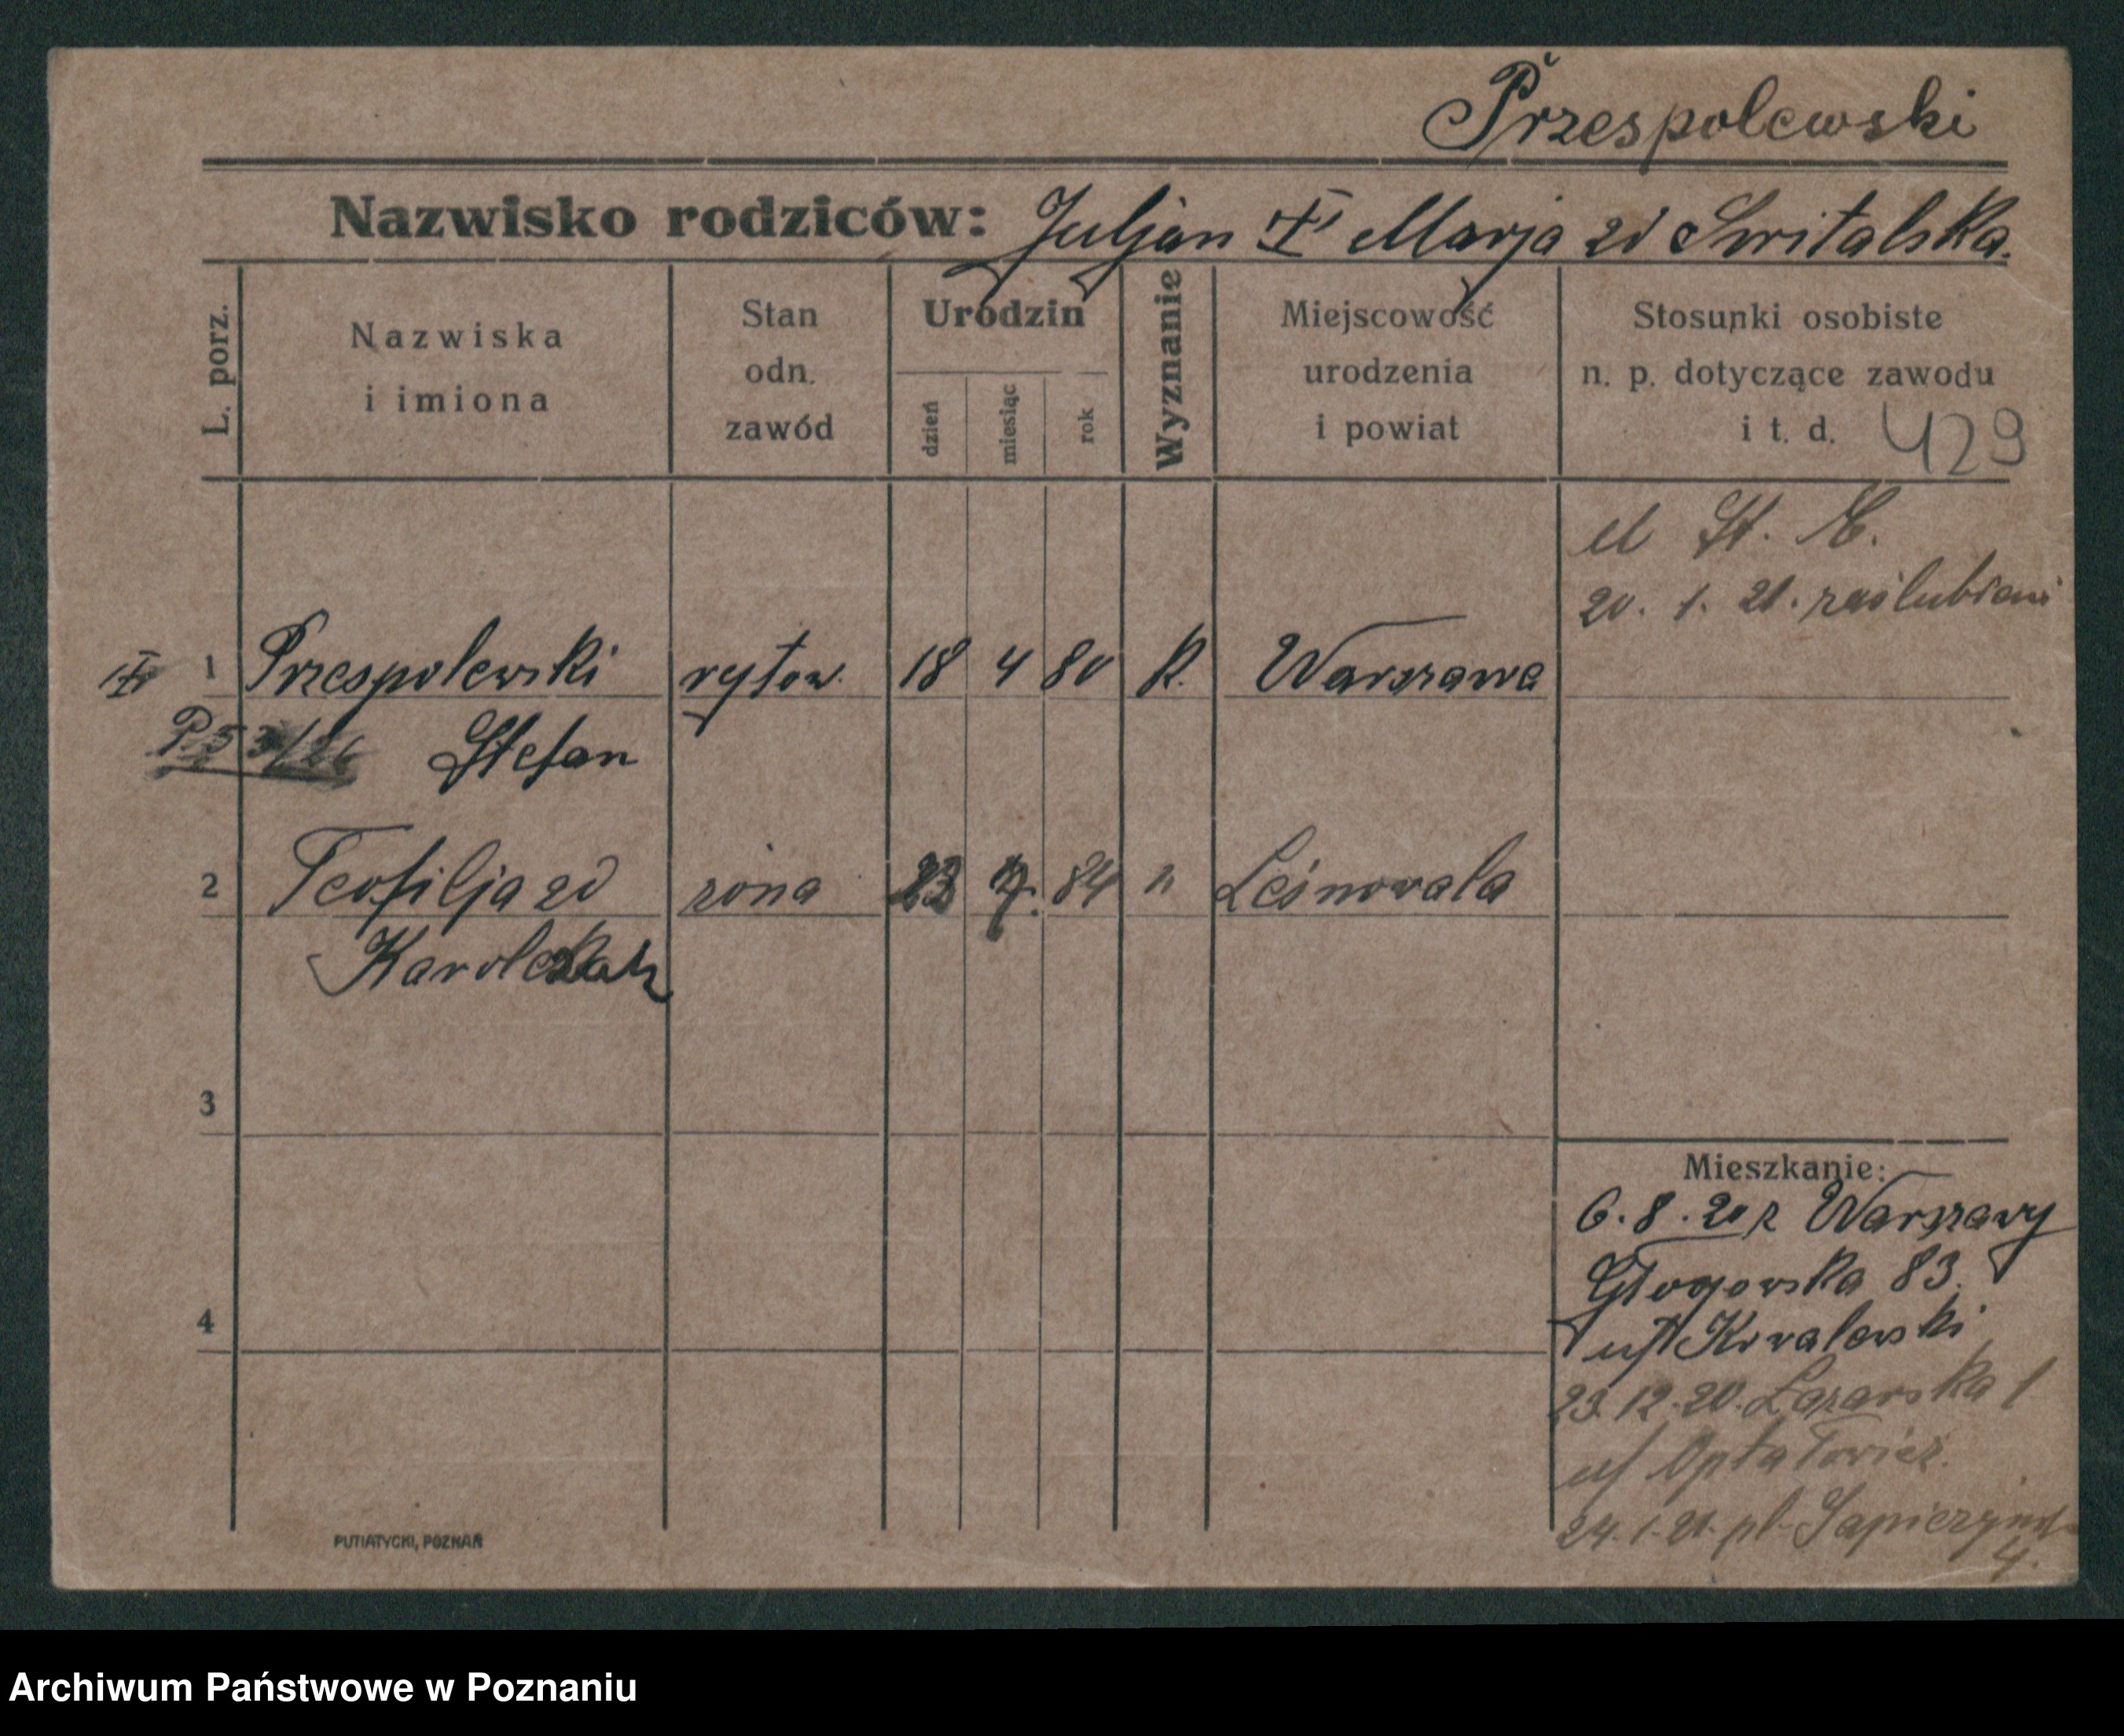 Przespolewski
Nazwisko rodziców: Juljan I Marja zd Switalska.
L. porz.
Nazwiska
i imiona
Stan
odn.
zawód
Urodzin
dzień
miesiąc
rok
Wyznanie
Miejscowość
urodzenia
i powiat
Stosunki osobiste
n. p. dotyczące zawodu
i t. d. 429
St.
20. 1. 21. zaślubieni
1 Przespolewski rytow. 18 4 80 k. Warszawa
P. 53/26 Stefan
2 Teofilja zd żona 23 7. 84 Leśnowala
Karolczak
3
4
Mieszkanie:
6. 8. 20 z Warszawy
Głogowska 83.
u/ Kowalewski
23. 12. 20. Łazarska 1
u/
24. 1. 21. pl. 
4.
PUTIATYCKI, POZNAŃ
Archiwum Państwowe w Poznaniu